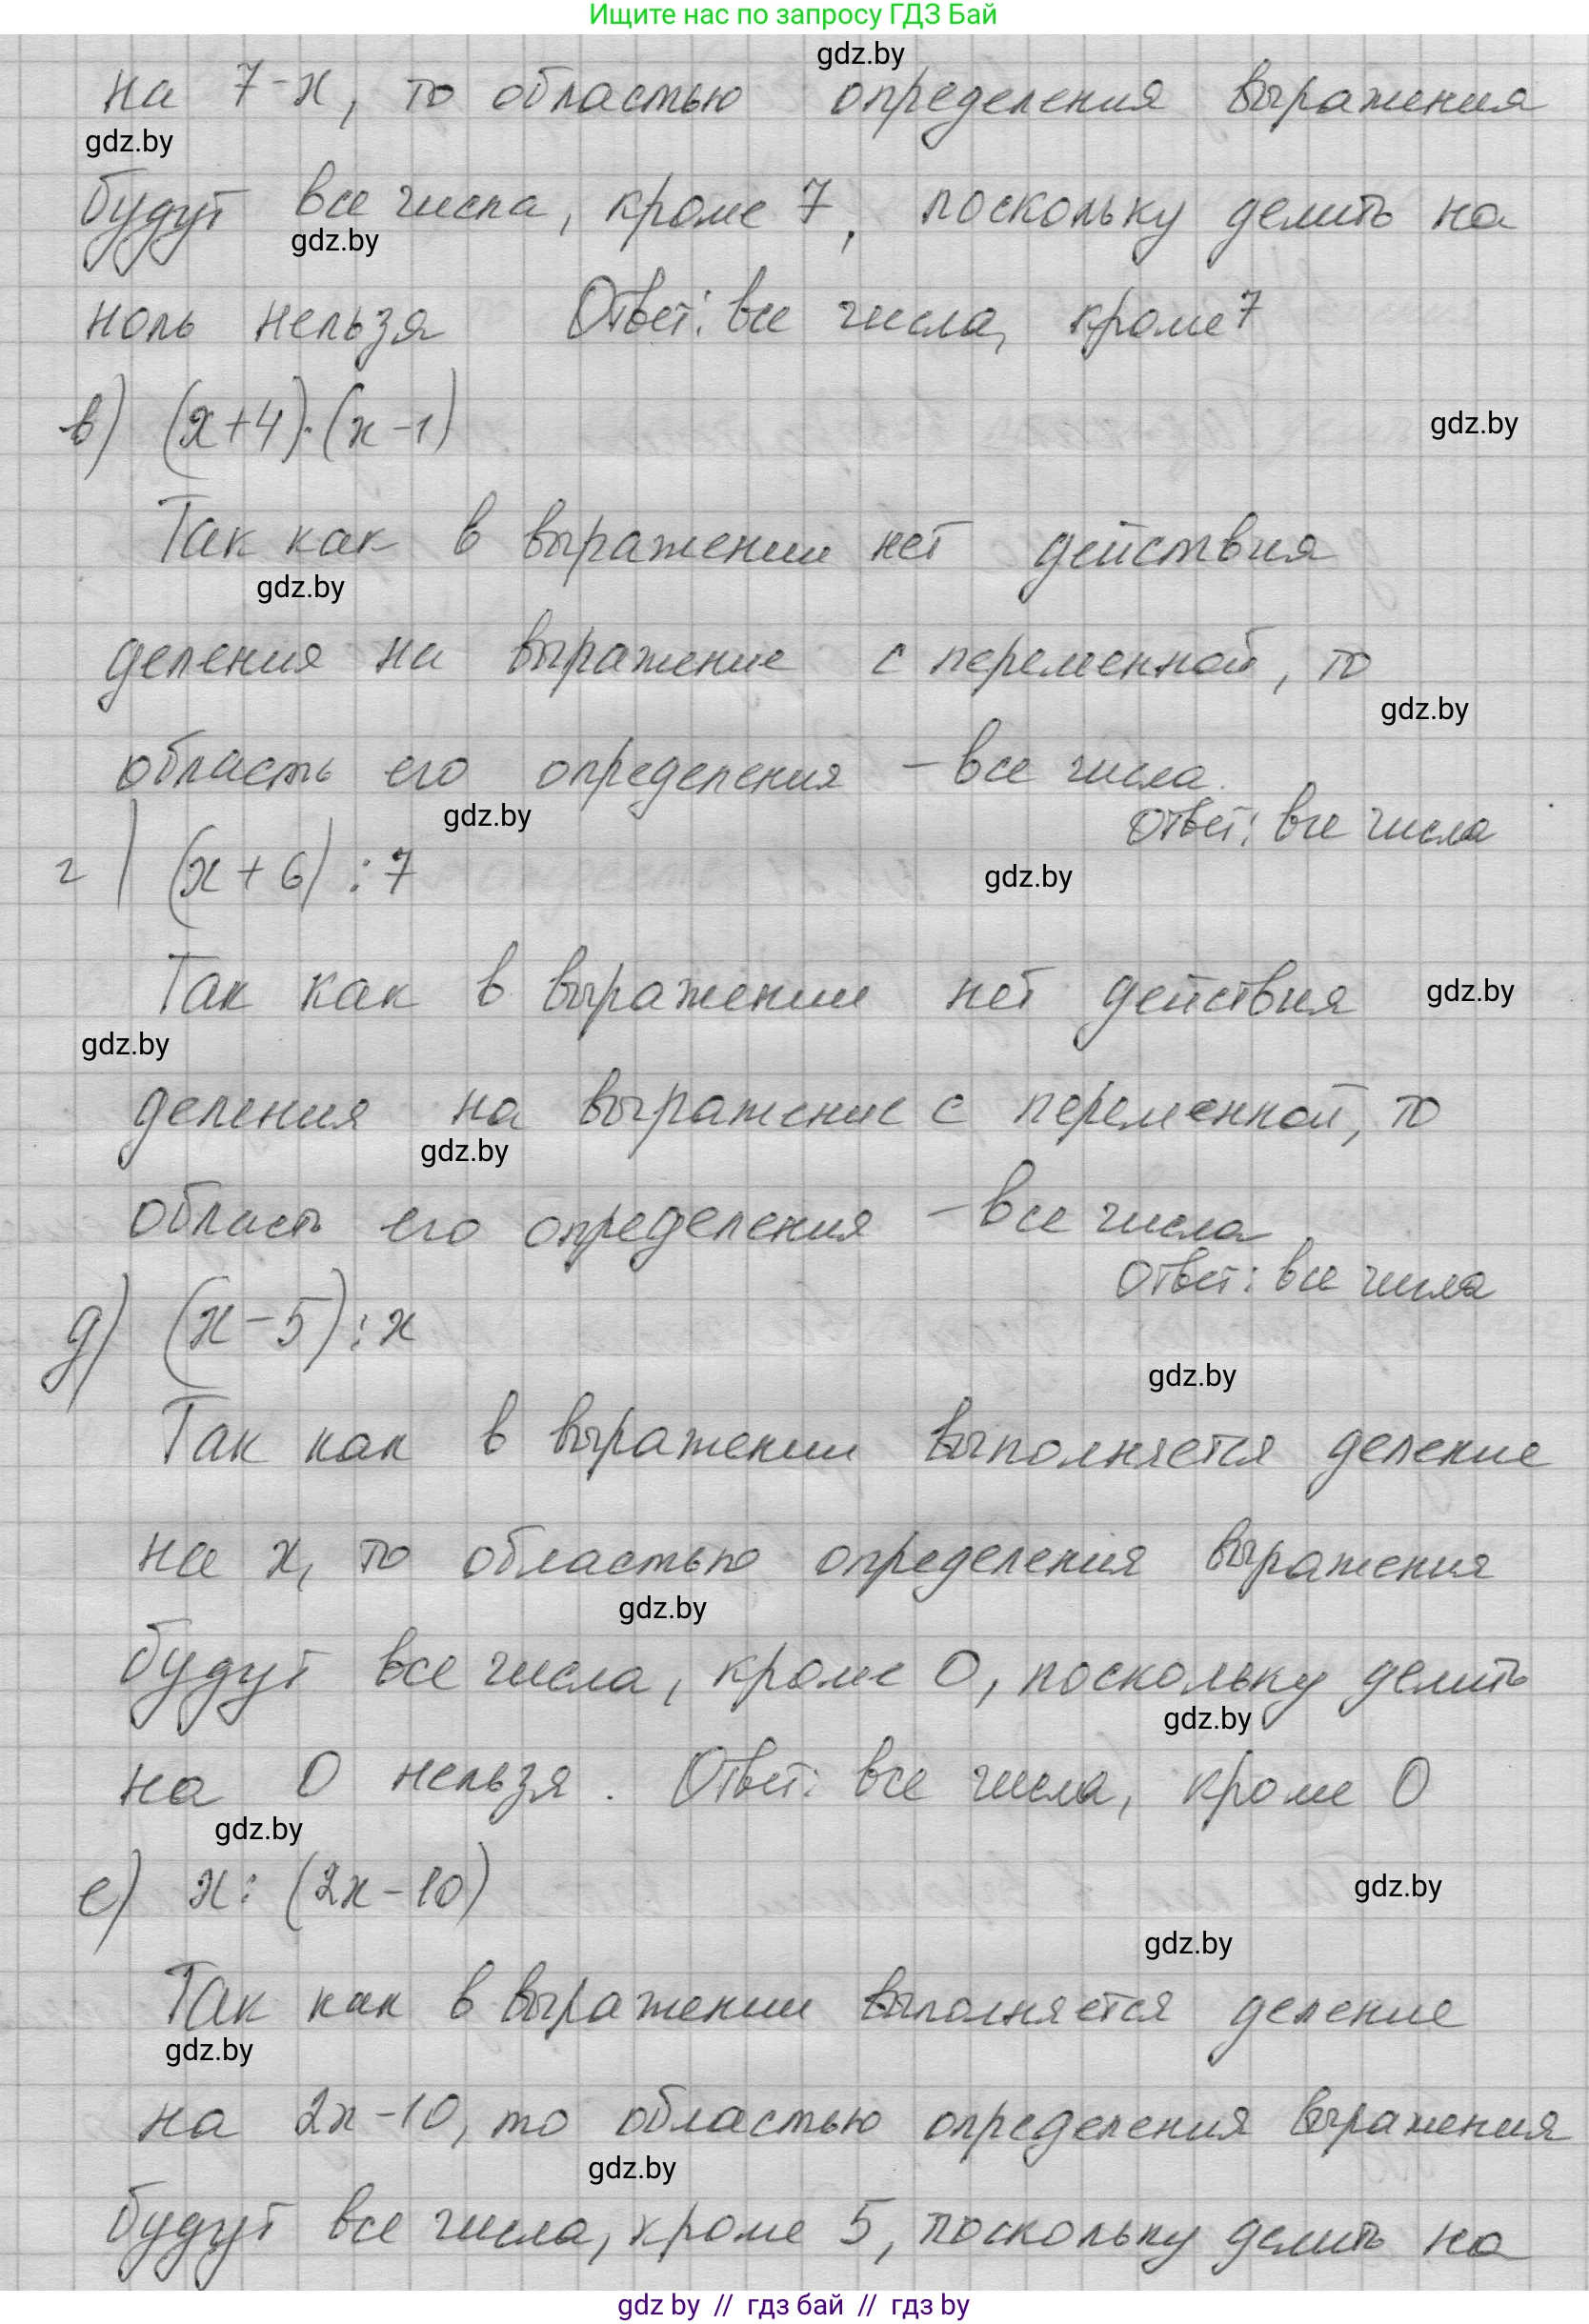 Ищите нас по запросу ГДЗ Бай
gdz.by
на 7-x, то областью определения выражения
gdz.by
будут все числа, кроме 7, поскольку делить на
gdz.by
ноль нельзя Ответ: все числа, кроме 7
в) (x+4)·(x-1)
gdz.by
Так как в выражении нет действия
gdz.by
деления на выражение с переменной, то
gdz.by
область его определения - все числа.
gdz.by
Ответ: все числа
г) (x+6):7
gdz.by
Так как в выражении нет действия
gdz.by
gdz.by
деления на выражение с переменной, то
gdz.by
область его определения - все числа.
Ответ: все числа
д) (x-5):x
gdz.by
Так как в выражении выполняется деление
на x, то областью определения выражения
gdz.by
будут все числа, кроме 0, поскольку делить
gdz.by
на 0 нельзя. Ответ: все числа, кроме 0
gdz.by
е) x:(2x-10)
gdz.by
gdz.by
Так как в выражении выполняется деление
gdz.by
на 2x-10, то областью определения выражения
gdz.by
будут все числа, кроме 5, поскольку делить на
gdz by // гдз бай // gdz by